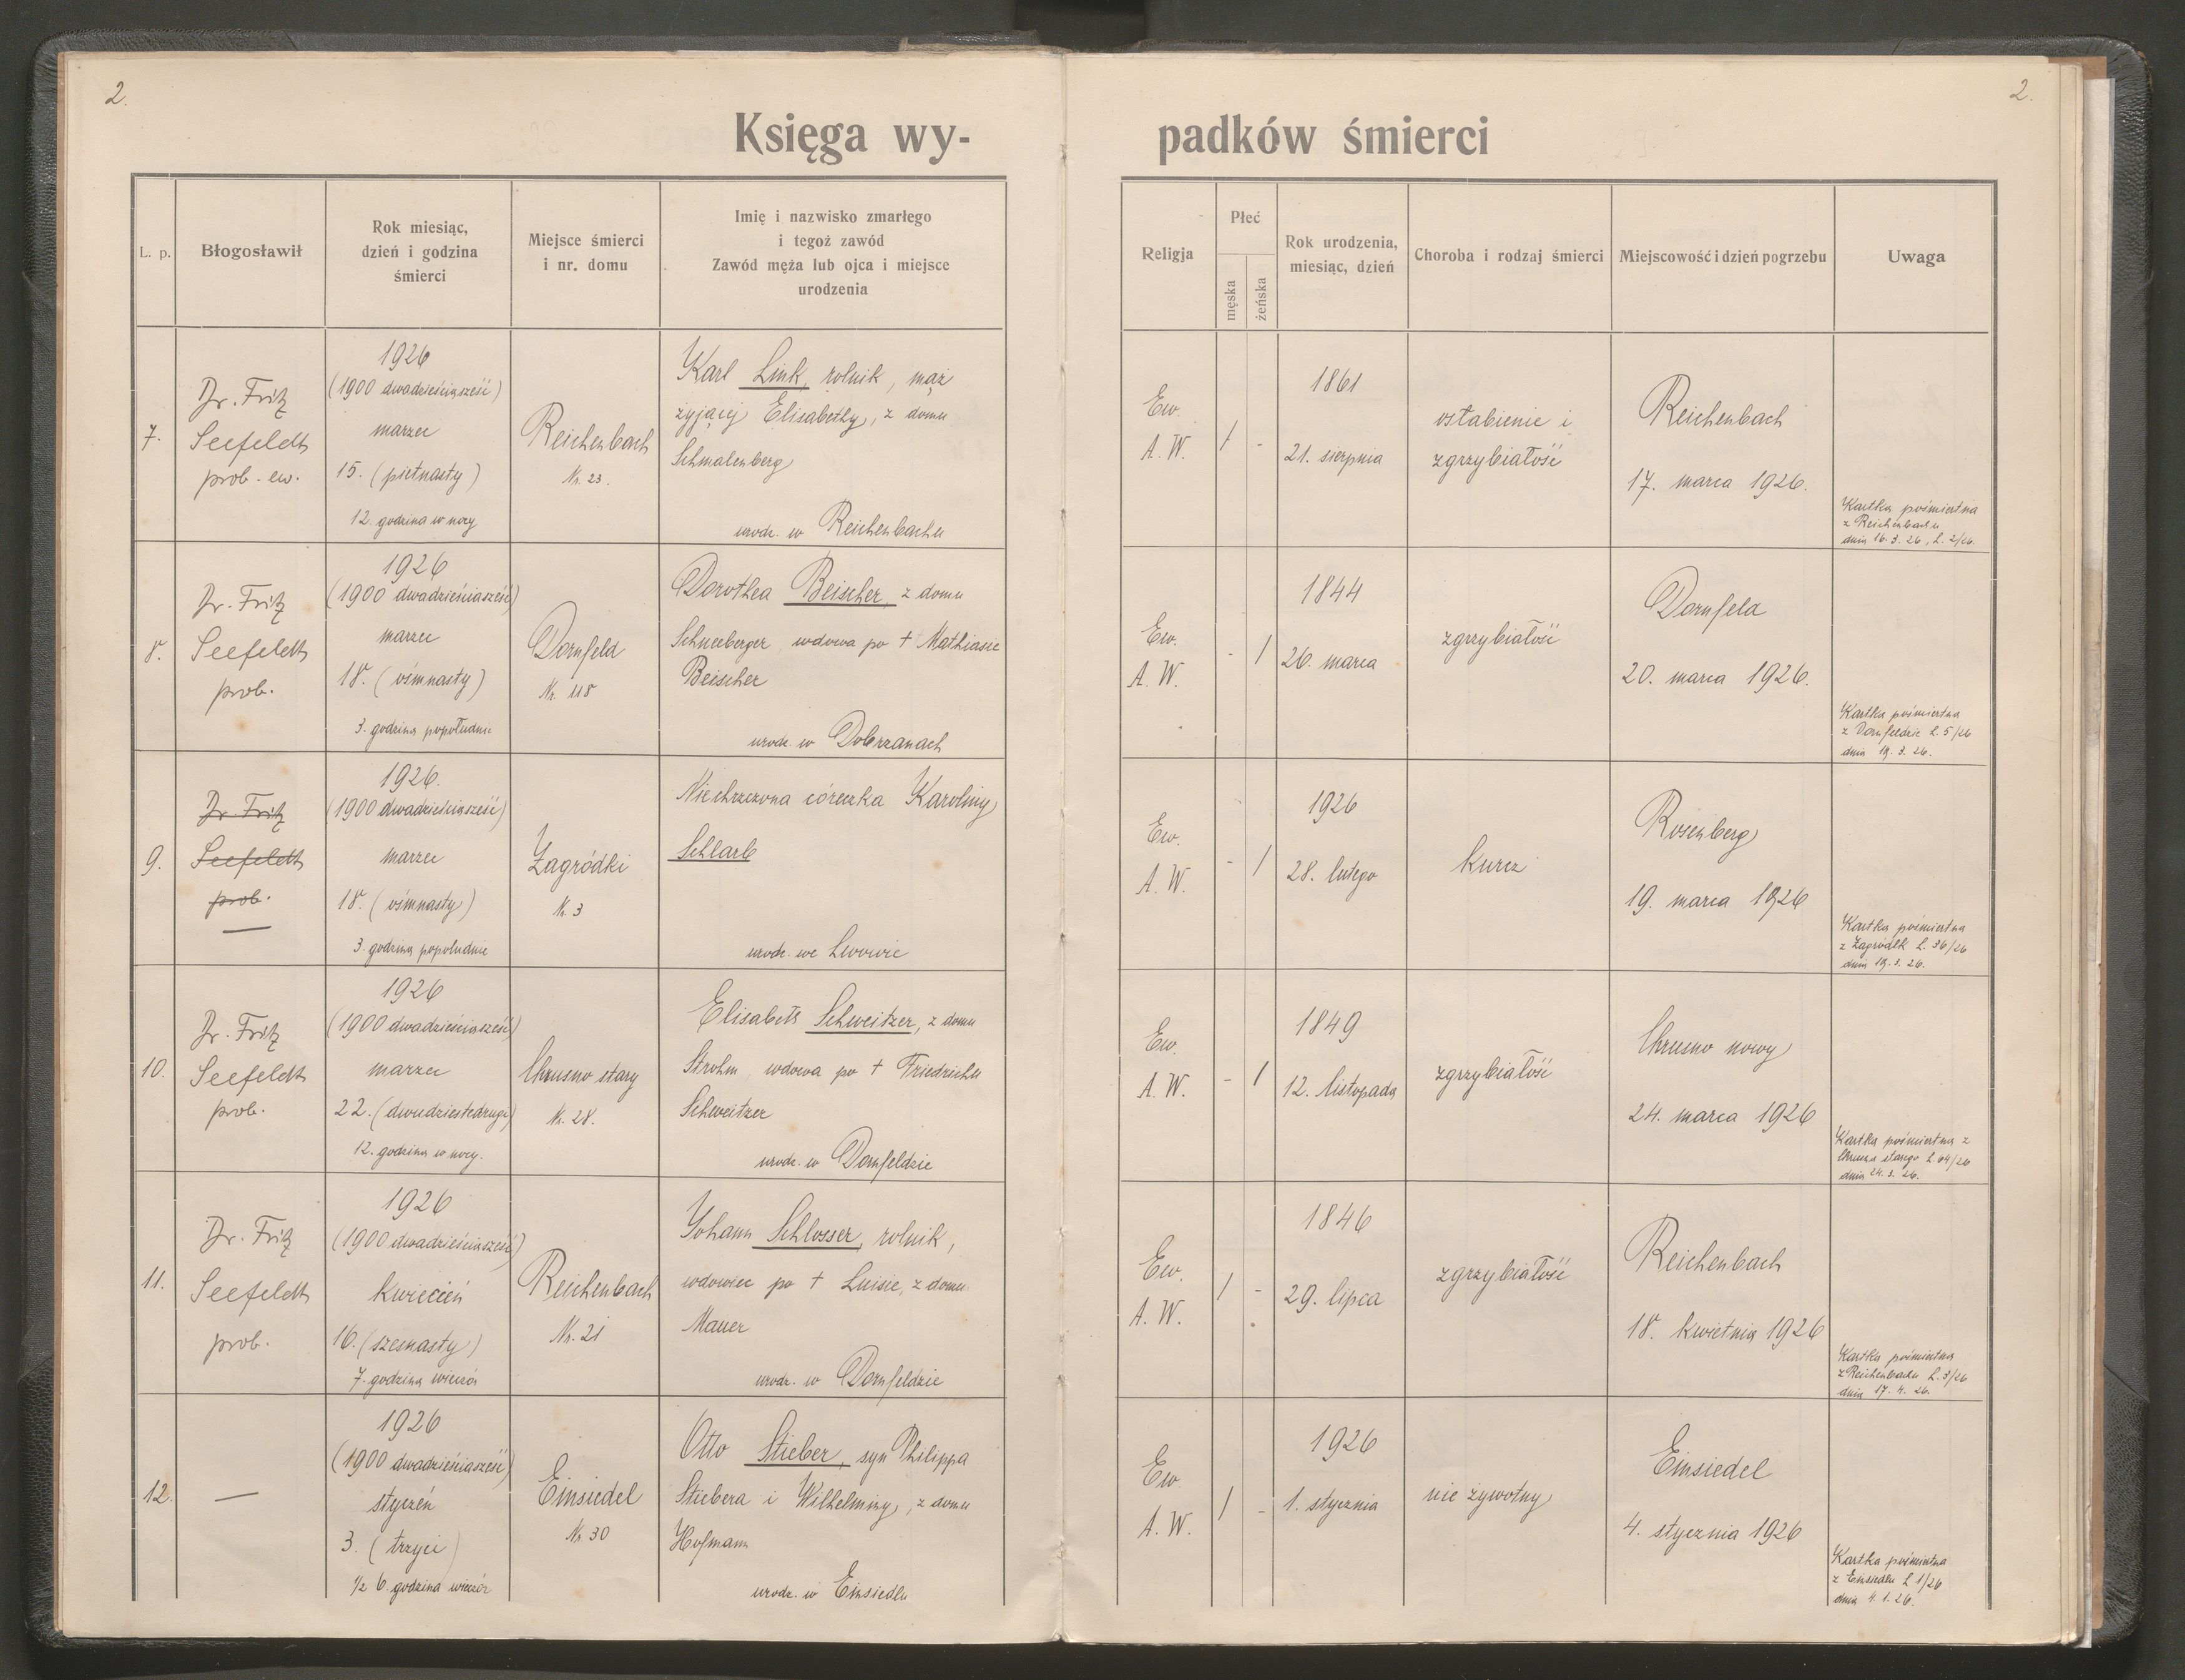 2.
2.
Księga wy-
padków śmierci
L. p.
Błogosławił
Rok miesiąc,
dzień i godzina
śmierci
Miejsce śmierci
i nr. domu
Imię i nazwisko zmarłego
i tegoż zawód
Zawód męża lub ojca i miejsce
urodzenia
Religja
Płeć
męska
żeńska
Rok urodzenia,
miesiąc, dzień
Choroba i rodzaj śmierci
Miejscowość i dzień pogrzebu
Uwaga
7.
Dr. Fritz
Seefeldt
prob. ew.
1926
(1900 dwadzieściasześć)
marzec
15. (piętnasty)
12. godzina w nocy
Reichenbach
Nr. 23.
Karl Link, rolnik, mąż
żyjącej Elisabethy, z domu
Schmalenberg
urodz. w Reichenbachu
Ew.
A. W.
1
-
1861
21. sierpnia
osłabienie i
zgrzybiałość
Reichenbach
17. marca 1926.
Kartka pośmiertna
z Reichenbachu
dnia 16. 3. 26, L. 2/26.
8.
Dr. Fritz
Seefeldt
prob.
1926
(1900 dwadzieściasześć)
marzec
18. (ośmnasty)
3. godzina popołudnie
Dornfeld
Nr. 118
Dorothea Beischer, z domu
Schneeberger, wdowa po † Mathiasie
Beischer
urodz. w Dobrzanach
Ew.
A. W.
-
1
1844
26. marca
zgrzybiałość
Dornfeld
20. marca 1926.
Kartka pośmiertna
z Dornfeldzie L. 5/26
dnia 19. 3. 26.
9.
Dr. Fritz
Seefeldt
prob.
—
1926.
(1900 dwadzieściasześć)
marzec
18. (ośmnasty)
3. godzina popołudnie
Zagródki
Nr. 3
Niechrzczona córeczka Karoliny
Schlarb
urodz. we Lwowie
Ew.
A. W.
-
1
1926
28. lutego
kurcz
Rosenberg
19. marca 1926
Kartka pośmiertna
z Zagródk L. 36/26
dnia 19. 3. 26.
10.
Dr. Fritz
Seefeldt
prob.
1926
(1900 dwadzieściasześć)
marzec
22. (dwudziestedrugi)
12. godzina w nocy.
Chrusno stary
Nr. 28.
Elisabeth Schweitzer, z domu
Strohm, wdowa po † Friedrichu
Schweitzer
urodz. w Dornfeldzie
Ew.
A. W.
-
1
1849
12. listopada
zgrzybiałość
Chrusno nowy
24. marca 1926
Kartka pośmiertna z
Chrusna starego L. 64/26
dnia 24. 3. 26.
11.
Dr. Fritz
Seefeldt
prob.
1926
(1900 dwadzieściasześć)
kwiecień
16. (szesnasty)
7. godzina wieczór
Reichenbach
Nr. 21
Johann Schlosser, rolnik,
wdowiec po † Luisie, z domu
Mauer
urodz. w Dornfeldzie
Ew.
A. W.
1
-
1846
29. lipca
zgrzybiałość
Reichenbach
18. kwietnia 1926
Kartka pośmiertna
z Reichenbachu L. 3/26
dnia 17. 4. 26.
12.
—
1926
(1900 dwadzieściasześć)
styczeń
3. (trzyci)
1/2 6. godzina wieczór
Einsiedel
Nr. 30
Otto Stieber, syn Philippa
Stiebera i Wilhelminy, z domu
Hofmann
urodz. w Einsiedlu
Ew.
A. W.
1
-
1926
1. stycznia
nie żywotny
Einsiedel
4. stycznia 1926
Kartka pośmiertna
z Einsiedlu L. 1/26
dnia 4. 1. 26.